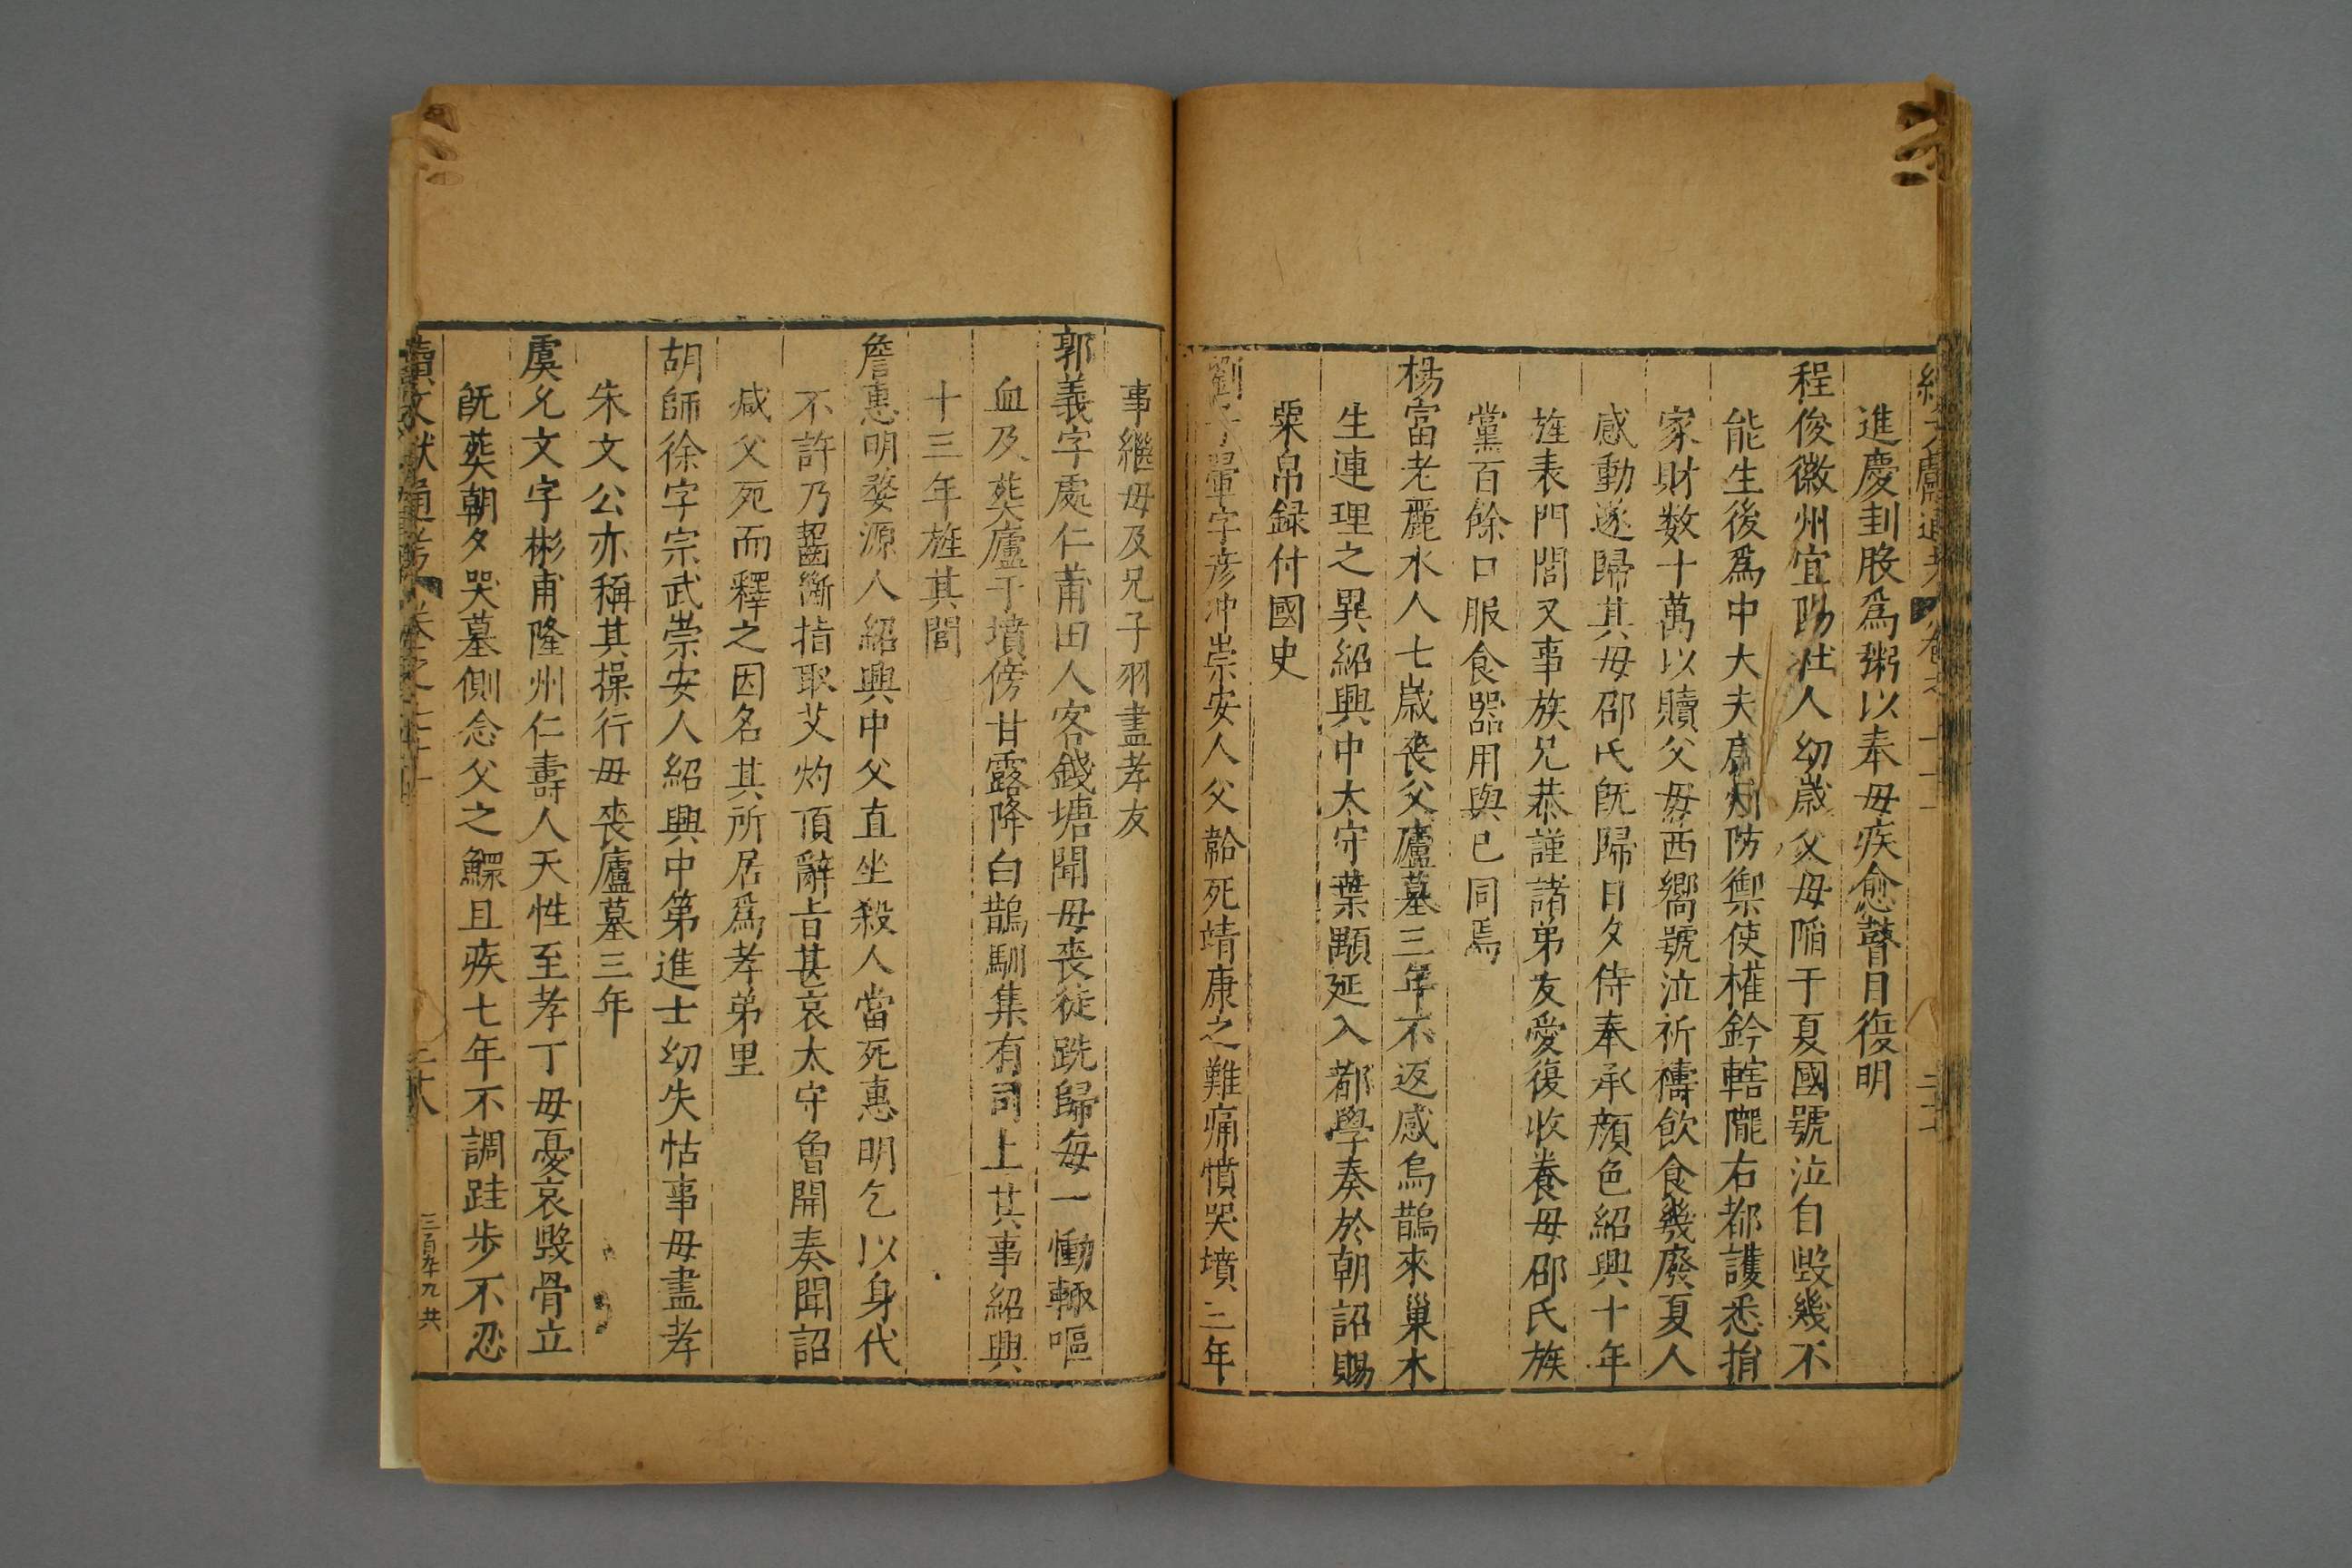 進慶刲股爲粥以奉母疾愈瞽目復明
程俊徽州宜陽壯人幼歲父母陷于夏國號泣自毁幾不
能生後爲中大夫 州防禦使權鈐轄隴右都護悉捐
家財数十萬以贖父母西嚮號泣祈禱飲食幾廢夏人
感動遂歸其母邵氏旣歸日夕侍奉承顔色紹興十年
旌表門閭又事族兄恭謹諸弟友愛復收養母邵氏族
黨百餘口服食器用與已同焉
楊富老麗水人七歲丧父廬墓三年不返感烏鵲來巢木
生連理之異紹興中太守葉顒延入都學奏於朝詔賜
粟帛録付國史
劉子翬字彦冲崇安人父韐死靖康之難痛憤哭墳三年
事繼母及兄子羽盡孝友
郭義字處仁莆田人客錢塘聞母丧徒跣歸每一慟輙嘔
血及葬廬于墳傍甘露降白鵲馴集有司上其事紹興
十三年旌其閭
詹惠明婺源人紹興中父直坐殺人當死惠明乞以身代
不許乃齧斷指取艾灼頂辭㫖甚哀太守魯開奏聞詔
减父死而釋之因名其所居爲孝弟里
胡師徐字宗武崇安人紹興中第進士幼失怙事母盡孝
朱文公亦稱其操行母丧廬墓三年
虞允文字彬甫隆州仁壽人天性至孝丁母憂哀毁骨立
旣葬朝夕哭墓側念父之鰥且疾七年不調跬歩不忍
續文獻通考 卷之七十 二十八